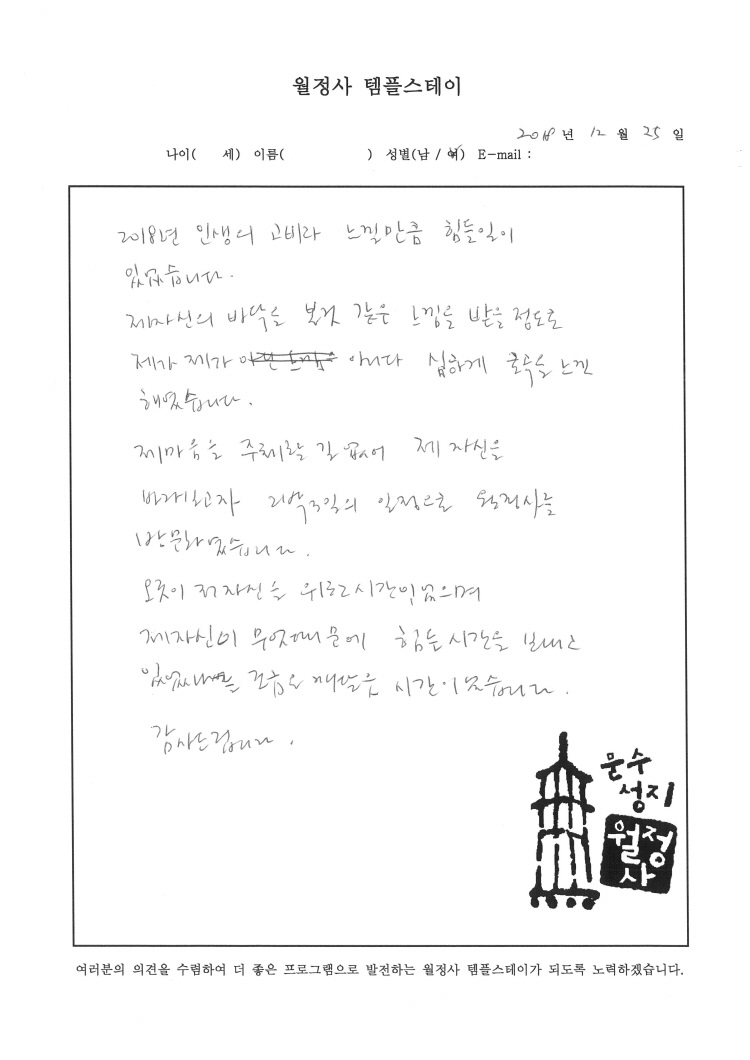 월정사 템플스테이
2018 년 12 월 25 일
나이( 세) 이름( ) 성별(남 / 여) E-mail :
2018년 인생의 고비라 느낄만큼 힘든일이
있었습니다.
제자신의 바닥을 본것 같은 느낌을 받을 정도로
제가 제가 아니다 심하게
하였습니다.
제마음을 주체할길 없어 제 자신을
바라보고자 2박3일의 일정으로 월정사를
방문하였습니다.
오롯이 저자신을 위한시간이었으며
제자신이 무엇때문에 힘든시간을 보내고
있었는지를 조금은 깨달은 시간이었습니다.
감사드립니다.
문수
성지
월정
사
여러분의 의견을 수렴하여 더 좋은 프로그램으로 발전하는 월정사 템플스테이가 되도록 노력하겠습니다.